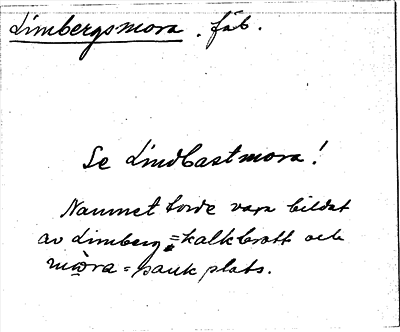 Limbergsmora. fäb.
Se Lindbastmora!
Namnet torde vara bildat
av Limberg = kalkbrott och
mora = sank plats.